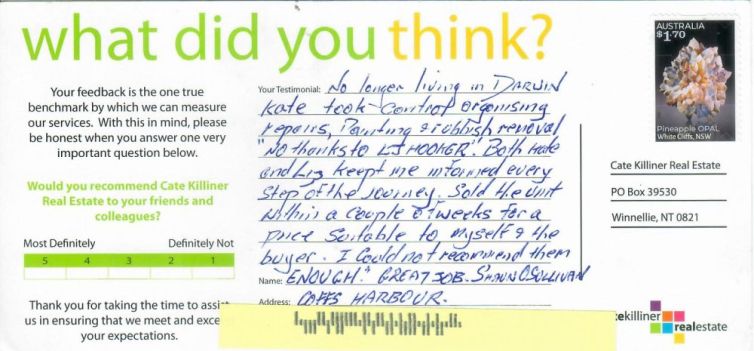 what did you think?
Your feedback is the one true
benchmark by which we can measure
our services. With this in mind, please
be honest when you answer one very
important question below.
Would you recommend Cate Killiner
Real Estate to your friends and
colleagues?
Most Definitely Definitely Not
5 4 3 2 1
Thank you for taking the time to assist
us in ensuring that we meet and excee
your expectations.
Your Testimonial: No longer living in DARWIN
Kate took control organising
repairs, Painting & rubbish removal
"NO thanks to LJ HOOKER". Both Kate
and Liz keept me informed every
Step of the journey. Sold the Unit
within a couple of weeks for a
price Suitable to myself & the
buyer. I Could not recommend them
Name: ENOUGH." GREAT JOB. SHAUN O'SULLIVAN
Address: COFFS HARBOUR.
AUSTRALIA
$1.70
Pineapple OPAL
White Cliffs, NSW
Cate Killiner Real Estate
PO Box 39530
Winnellie, NT 0821
tekilliner
realestate